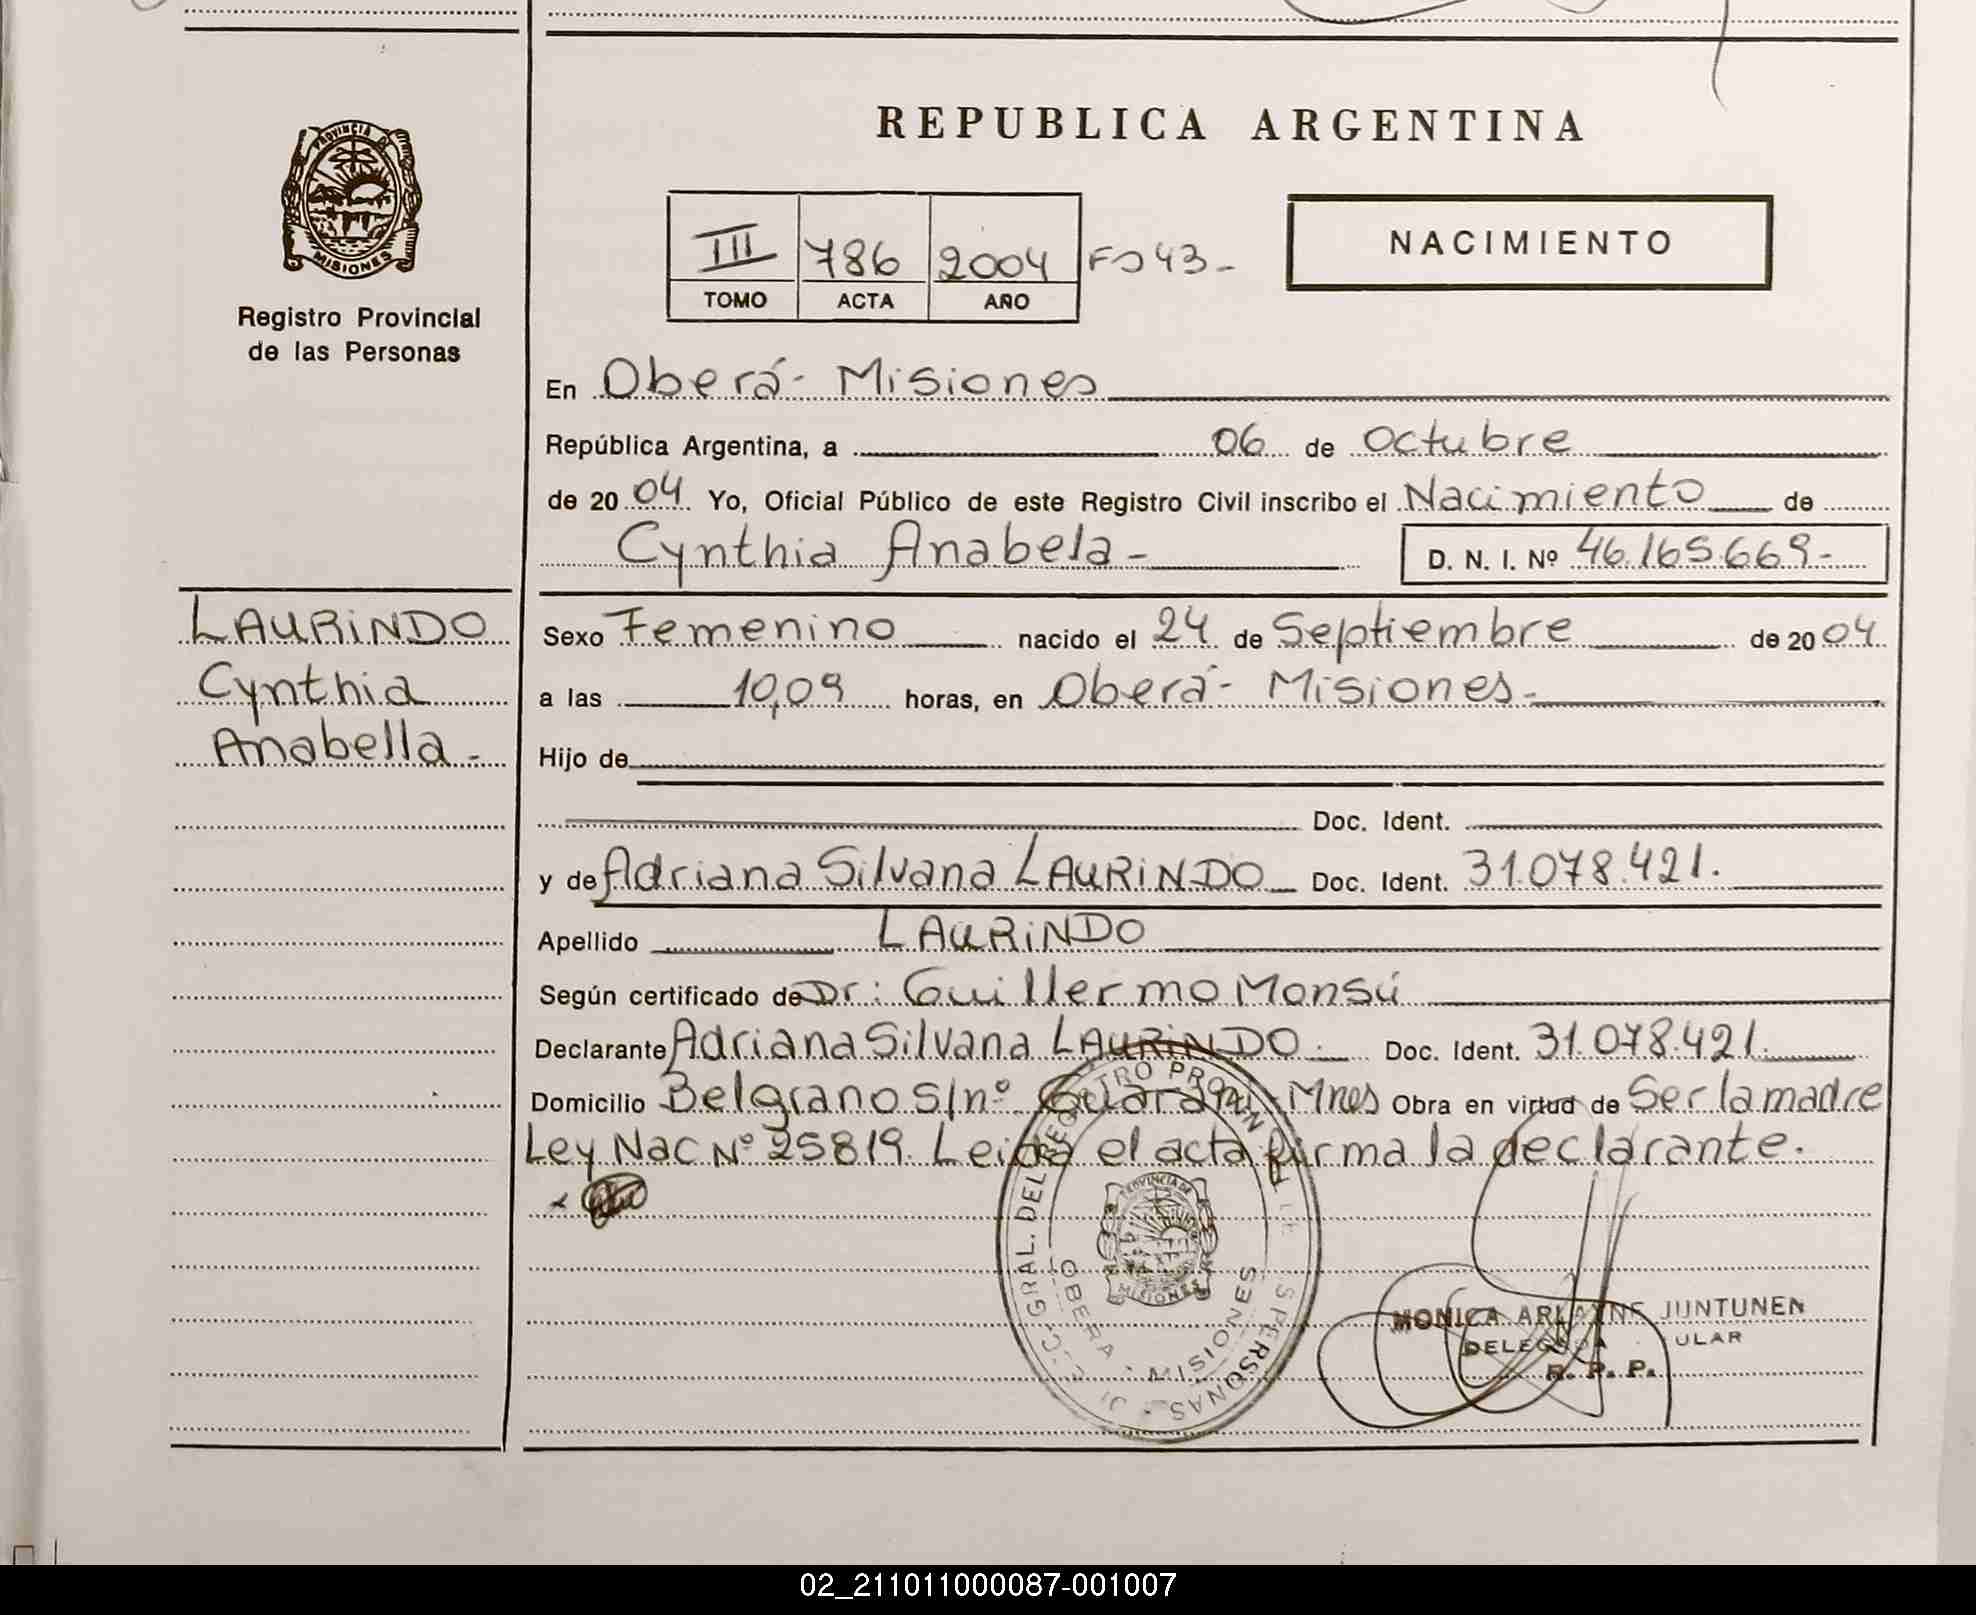 REPUBLICA ARGENTINA
PROVINCIA DE
MISIONES
Registro Provincial
de las Personas
III 786 2004 Fº 43-
TOMO ACTA AÑO
NACIMIENTO
En Oberá - Misiones
República Argentina, a 06 de Octubre
de 2004 Yo, Oficial Público de este Registro Civil inscribo el Nacimiento de
Cynthia Anabela - D. N. I. Nº 46.165.669-
LAURINDO
Cynthia
Anabella -
Sexo Femenino nacido el 24 de Septiembre de 2004
a las 10,09 horas, en Oberá - Misiones -
Hijo de
Doc. Ident.
y de Adriana Silvana LAURINDO Doc. Ident. 31.078.421.
Apellido LAURINDO
Según certificado de Dr: Guillermo Monsú
Declarante Adriana Silvana LAURINDO. Doc. Ident. 31.078.421.
Domicilio Belgrano S/nº Guaraní - Mnes Obra en virtud de Ser la madre
Ley Nac Nº 25819. Leida el acta firma la declarante.
GRAL. DEL REGISTRO PROVIN DE LAS PERSONAS
PROVINCIA DE
MISIONES
OBERA - MISIONES
MONICA ARLAYNE JUNTUNEN
DELEGADA TITULAR
R. P. P.
02_211011000087-001007